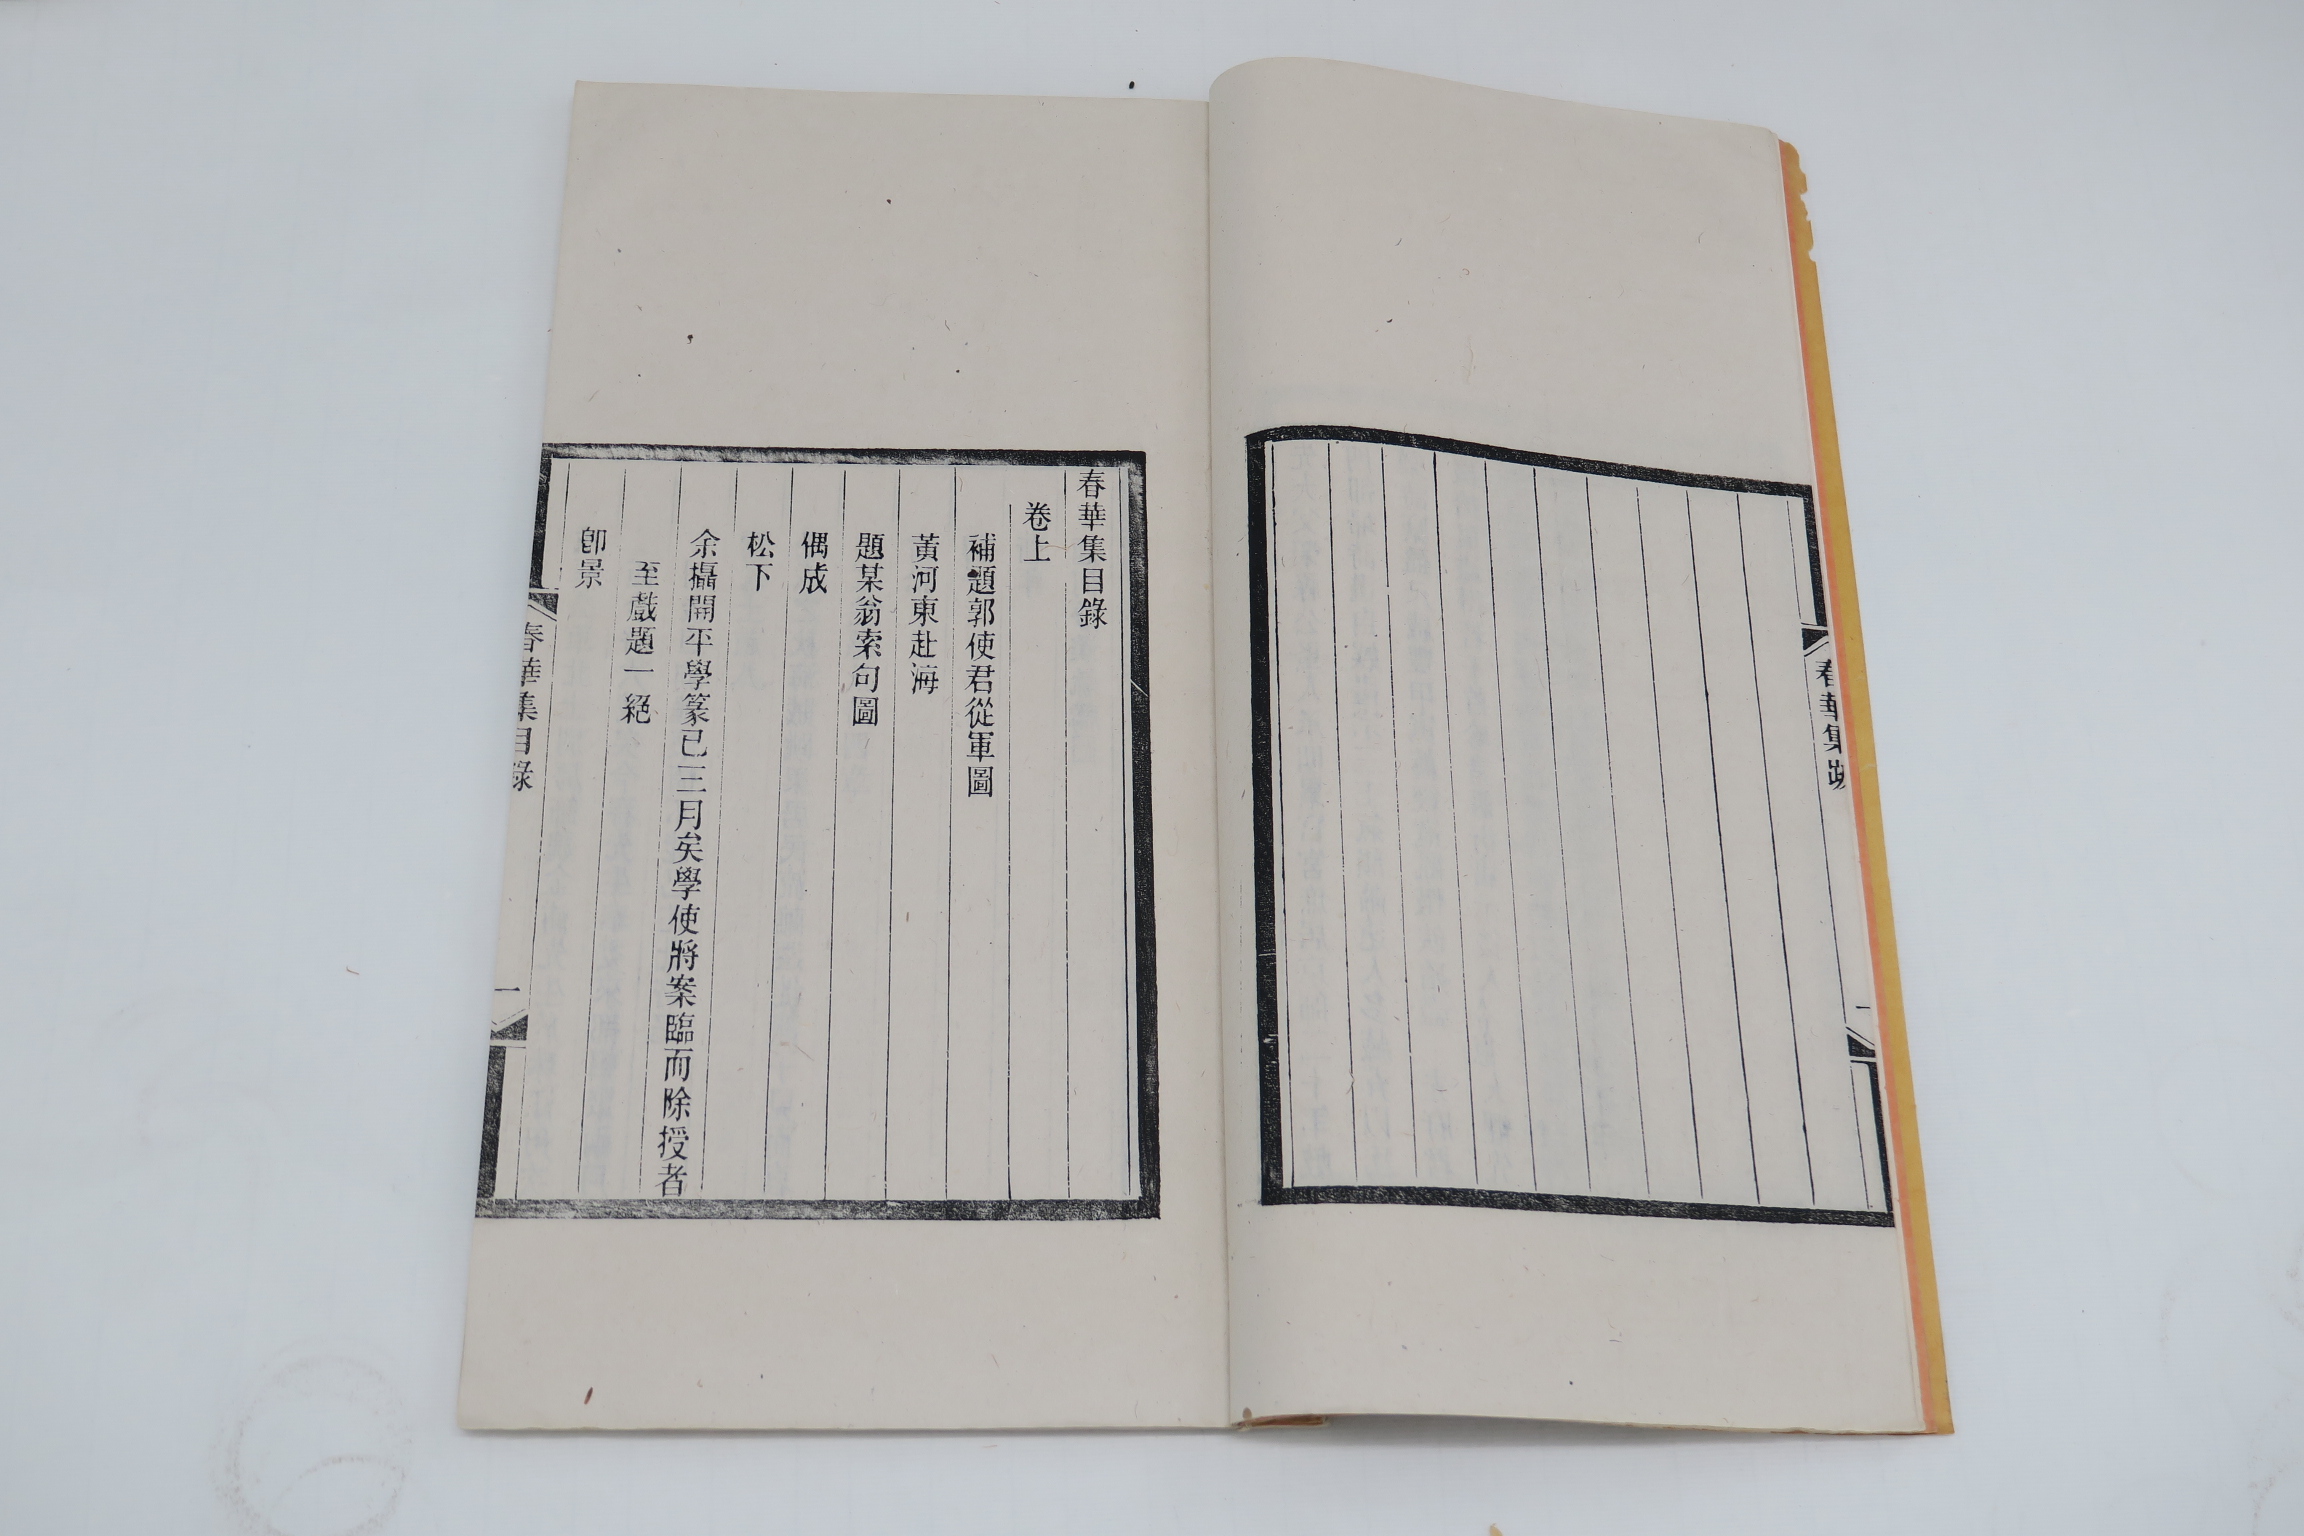 春華集跋
一
春華集目錄
卷上
補題郭使君從軍圖
黃河東赴海
題某翁索句圖
偶成
松下
余攝開平學篆已三月矣學使將案臨而除授者
至戲題一絕
卽景
春華集目錄
一